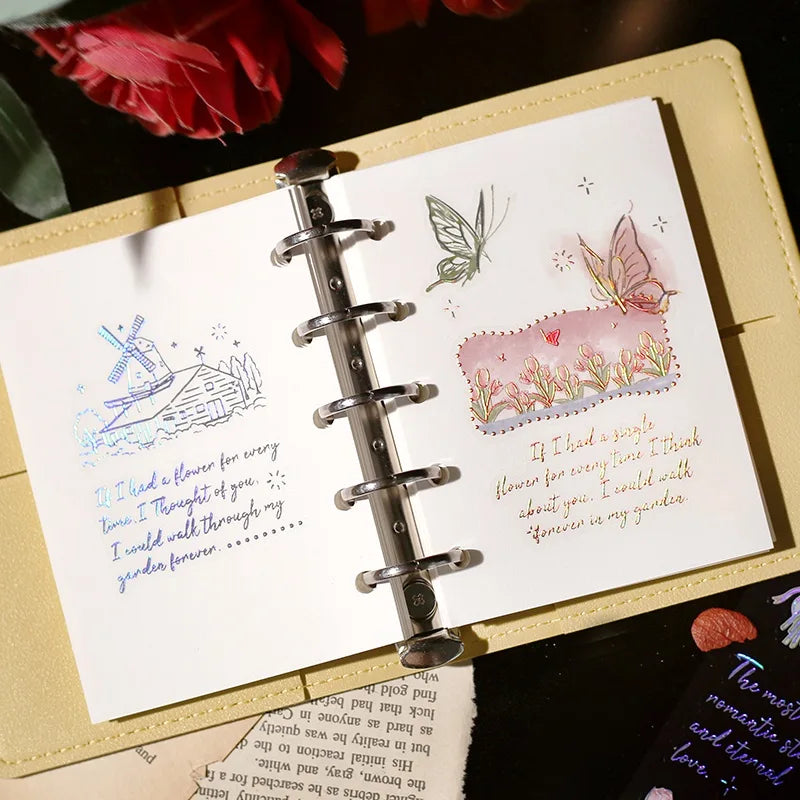 If I had a flower for every
time. I Thought of you.
I could walk through my
garden forever.
If I had a single
flower for every time I think
about you. I could walk
forever in my garden.
The most
romantic
and eternal
love.
who
find
luck that had befall
as hard as anyone
but in reality he was quietly
His initial reaction to the
the brown, gray, and white.
as he searched for a
patiently
and